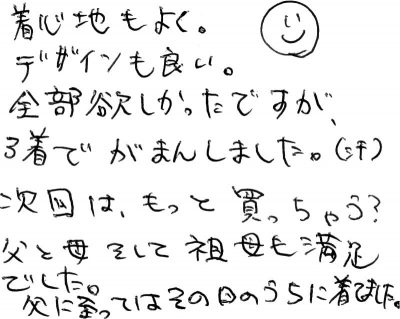 着心地もよく。
デザインも良い。
全部欲しかったですが、
3着でがまんしました。(汗)
次回は、もっと買っちゃう?
父と母そして祖母も満足
でした。
父に至ってはその日のうちに着てました。